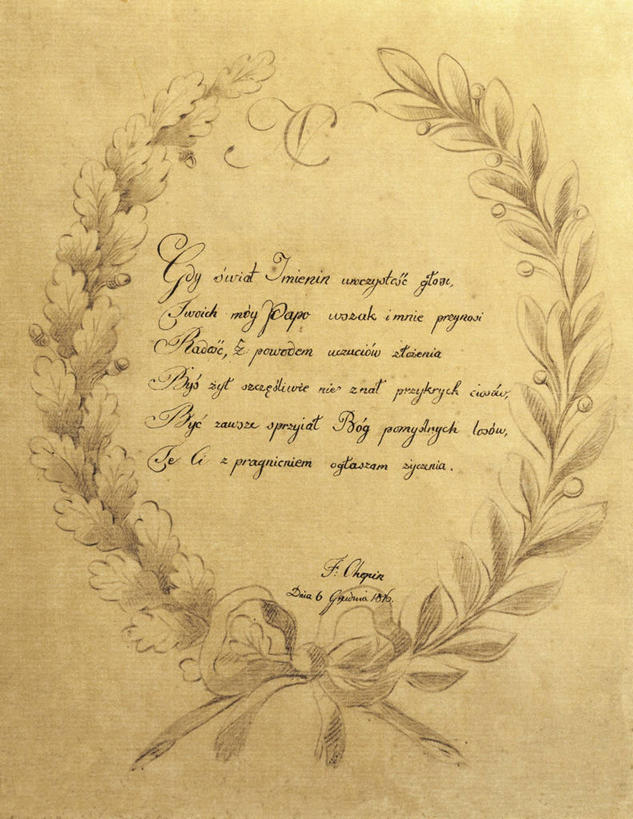 Gdy świat Imienin uroczystość głosi,
Twoich móy Papo wszak i mnie przynosi
Radość, z powodem uczuciów złożenia
Byś żył szczęśliwie nie znał przykrych ciosów,
Być zawsze sprzyiał Bóg pomyślnych losów,
Te Ci z pragnieniem ogłaszam życzenia.
F: Chopin
Dnia 6 Grudnia 1816.